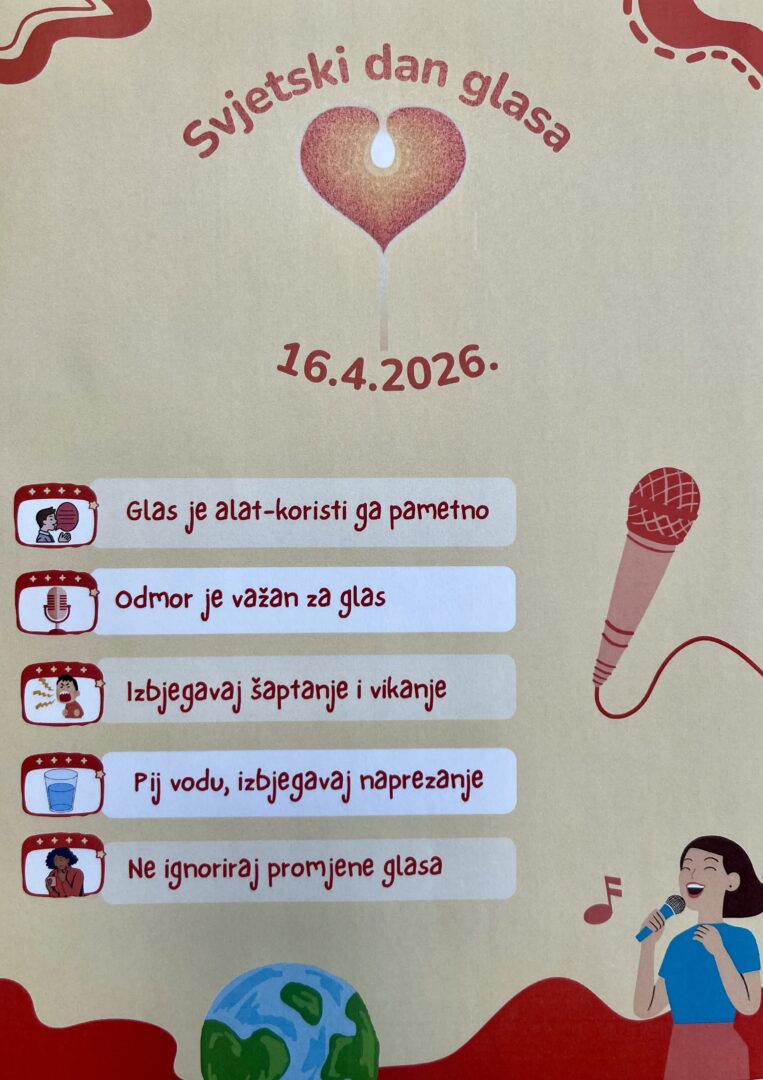 Svjetski dan glasa
16.4.2026.
Glas je alat-koristi ga pametno
Odmor je važan za glas
Izbjegavaj šaptanje i vikanje
Pij vodu, izbjegavaj naprezanje
Ne ignoriraj promjene glasa